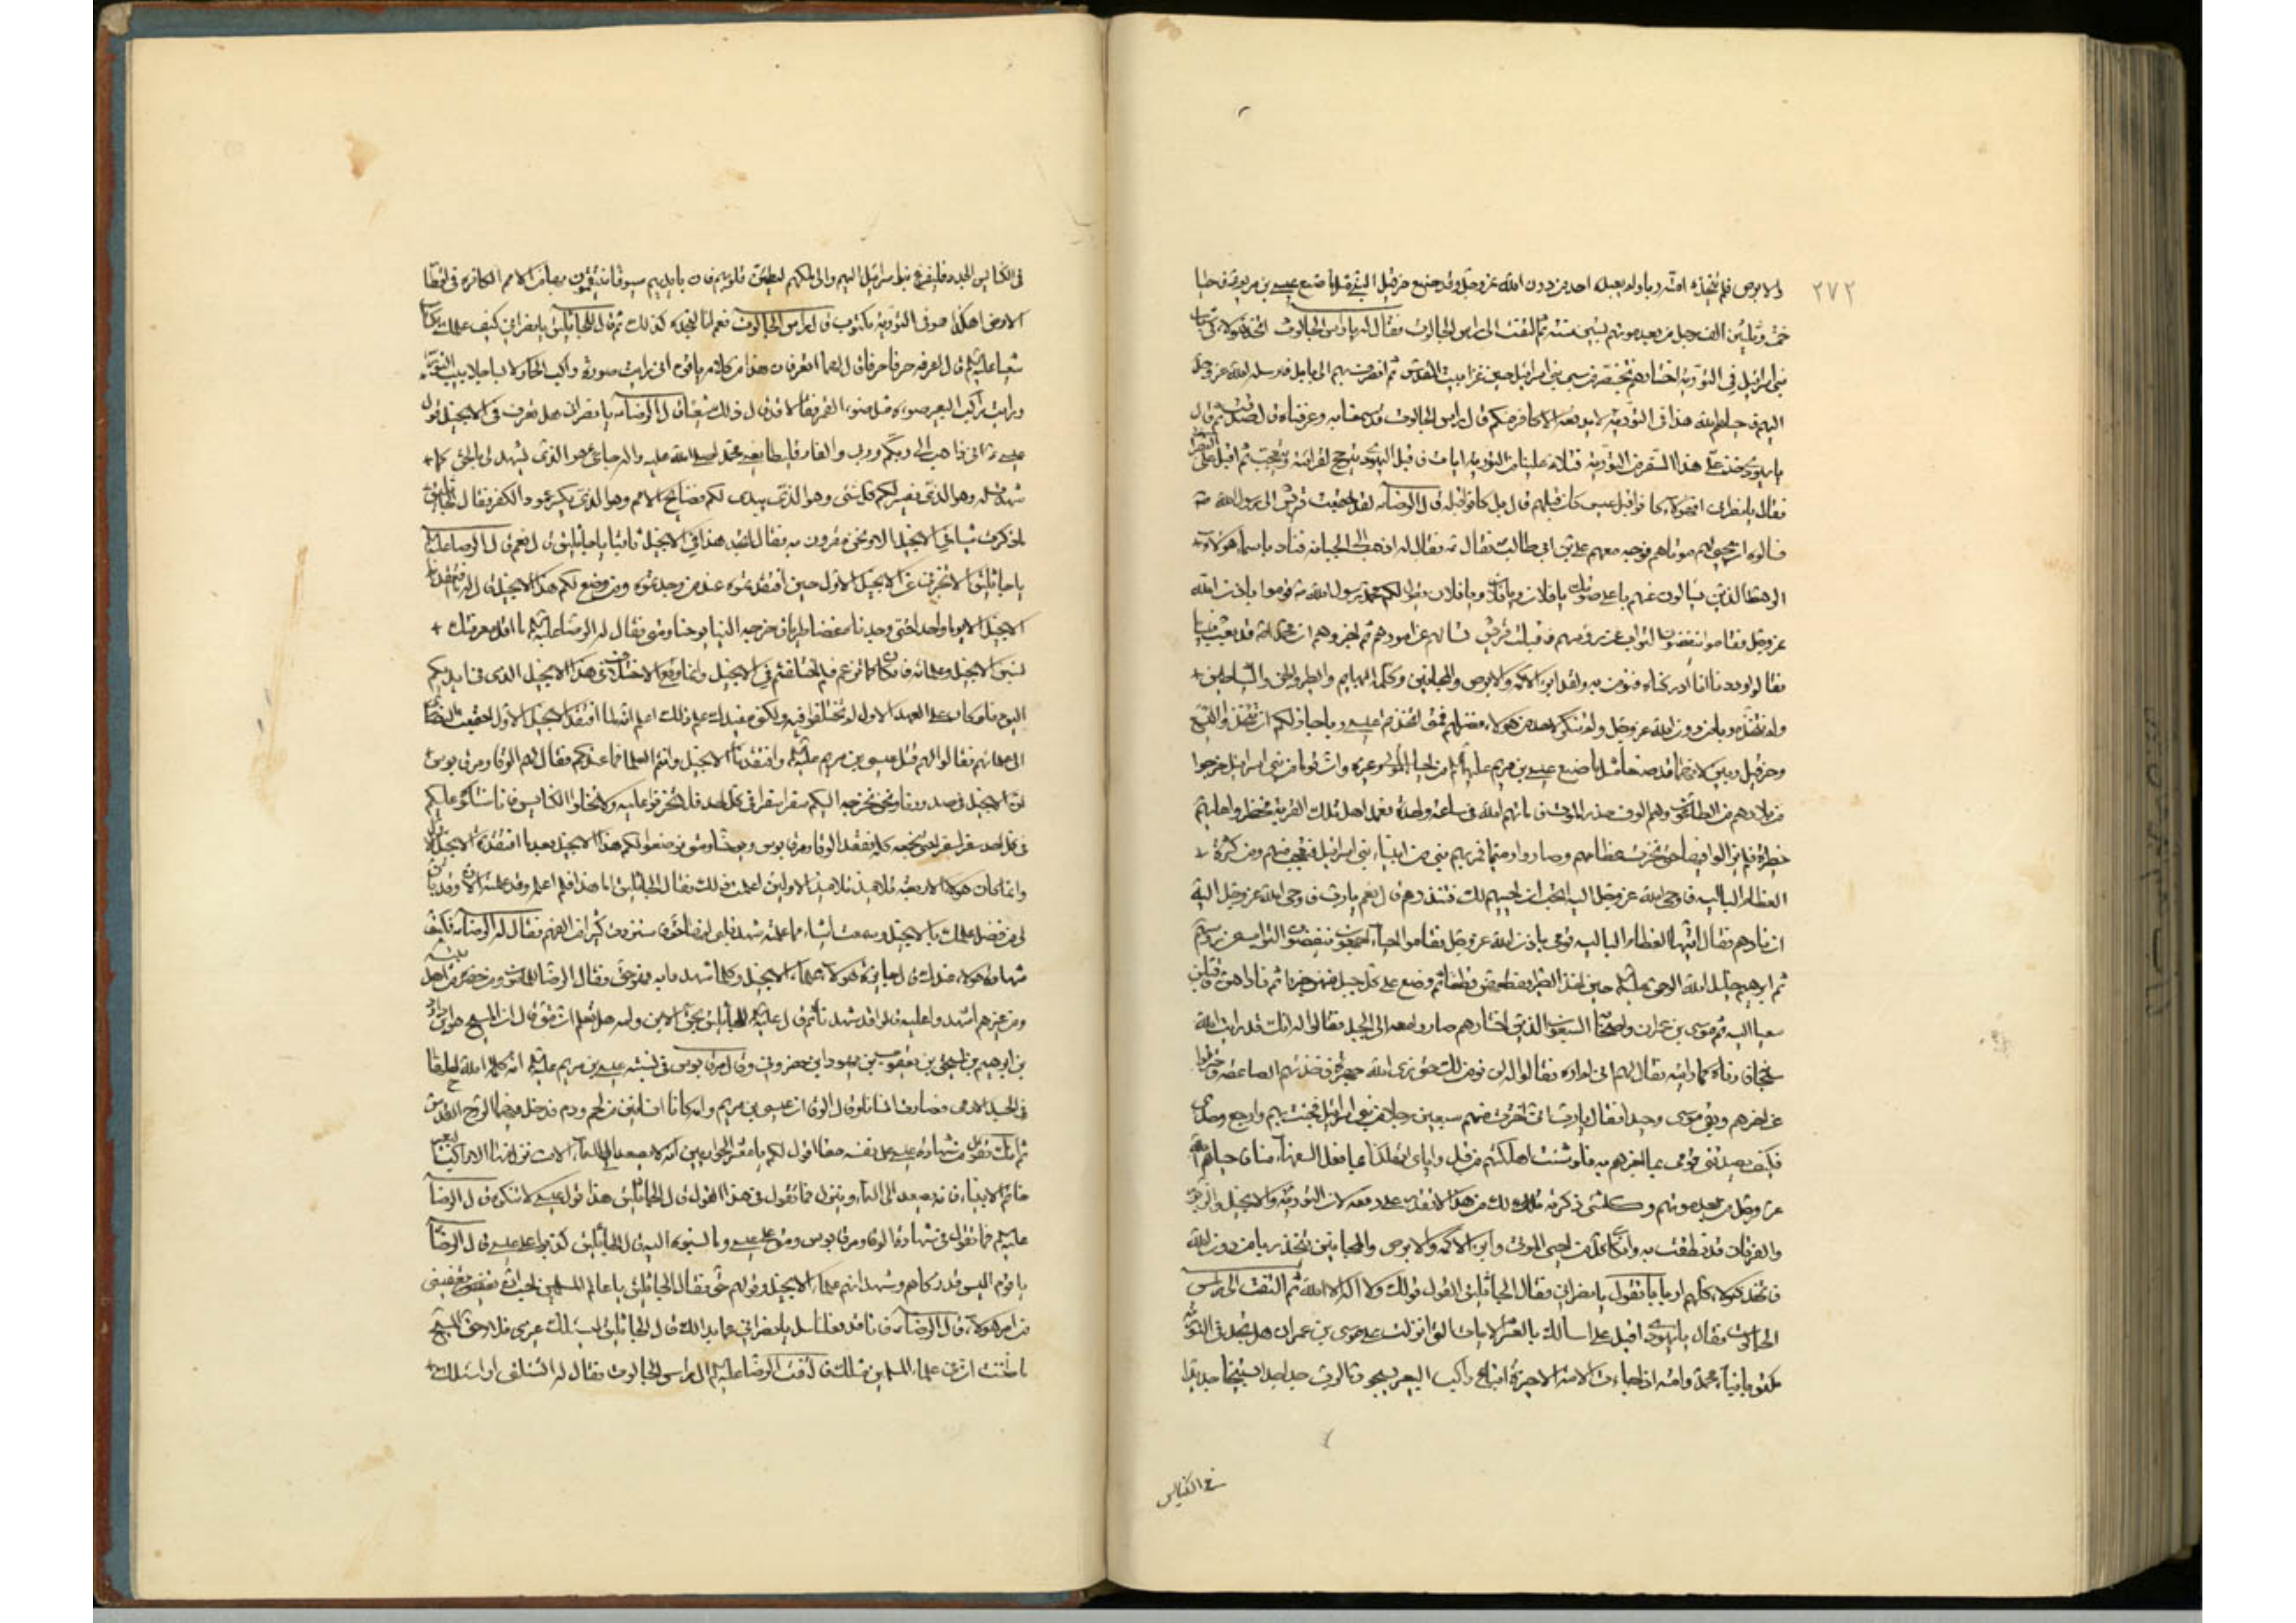 ٢٧٢
والابرص فلم تتخذه امته ربا ولم يعبده احد من دون الله عز وجل وقد صنع حزقيل النبي مثل ما صنع عيسى بن مريم فاحيا
خمسة وثلثين الف رجل من بعد موتهم بستين سنة ثم التفت الى راس الجالوت فقال له يا راس الجالوت اتجد هؤلاء في شباب
بني اسرائيل في التورية اختارهم بخت نصر من سبي بني اسرائيل حين غزا بيت المقدس ثم انصرف بهم الى بابل فارسله الله عز وجل
اليهم فاحياهم الله هذا في التورية لا يدفعه الا كافر منكم قال راس الجالوت قد سمعنا به وعرفناه قال صدقت ثم قال
يا يهودي خذ على هذا السفر من التورية فتلا علينا من التورية ايات فاقبل اليهودي يترجح لقرائته ويتعجب ثم اقبل على النصراني
فقال يا نصراني افهؤلاء كانوا قبل عيسى ام عيسى كان قبلهم قال بل كانوا قبله قال الرضا لقد اجتمعت قريش الى رسول الله
فسالوه ان يحيي لهم موتاهم فوجه معهم علي بن ابي طالب فقال له اذهب الى الجبانة فناد باسماء هؤلاء
الرهط الذين يسالون عنهم باعلى صوتك يا فلان ويا فلان ويا فلان يقول لكم محمد رسول الله قوموا باذن الله
عز وجل فقاموا ينفضون التراب عن رؤسهم فاقبلت قريش تسالهم عن امورهم ثم اخبروهم ان محمدا قد بعث نبيا
فقالوا وددنا انا ادركناه فنؤمن به ولقد ابرء الاكمه والابرص والمجانين وكلمه البهايم والطير والجن والشياطين
ولم نتخذه ربا من دون الله عز وجل ولم ننكر لاحد من هؤلاء فضلهم فمتى اتخذتم عيسى ربا جاز لكم ان تتخذوا اليسع
وحزقيل ربين لانهما قد صنعا مثل ما صنع عيسى بن مريم من احياء الموتى وغيره وان قوما من بني اسرائيل خرجوا
من بلادهم من الطاعون وهم الوف حذر الموت فاماتهم الله في ساعة واحدة فعمد اهل تلك القرية فحظروا عليهم
حظيرة فلم يزالوا فيها حتى نخرت عظامهم وصاروا رميما فمر بهم نبي من انبياء بني اسرائيل فتعجب منهم ومن كثرة
العظام البالية فاوحى الله عز وجل اليه اتحب ان احييهم لك فتنذرهم قال نعم يا رب فاوحى الله عز وجل اليه
ان نادهم فقال ايتها العظام البالية قومي باذن الله عز وجل فقاموا احياء اجمعون ينفضون التراب عن رؤسهم
ثم ابرهيم خليل الله الرحمن حين اخذ الطير فقطعهن قطعا ثم وضع على كل جبل منهن جزءا ثم ناداهن فاقبلن
سعيا اليه ثم موسى بن عمران واصحابه السبعون الذين اختارهم صاروا معه الى الجبل فقالوا له انك قد رايت الله
سبحانه فارناه كما رايته فقال لهم اني لم اره فقالوا لن نؤمن لك حتى نرى الله جهرة فاخذتهم الصاعقة فاحترقوا
عن اخرهم وبقي موسى وحيدا فقال يا رب اني اخترت منهم سبعين رجلا من بني اسرائيل فجئت بهم وارجع وحدي
فكيف يصدقني قومي بما اخبرهم به فلو شئت اهلكتهم من قبل واياي اتهلكنا بما فعل السفهاء منا فاحياهم الله
عز وجل من بعد موتهم وكل شئ ذكرته لك من هذا لا تقدر على دفعه لان التورية والانجيل والزبور
والفرقان قد نطقت به فان كان كل من احيى الموتى وابرء الاكمه والابرص والمجانين يتخذ ربا من دون الله
فاتخذ هؤلاء كلهم اربابا ما تقول يا نصراني فقال الجاثليق القول قولك ولا اله الا الله ثم التفت الى راس
الجالوت فقال يا يهودي اقبل علي اسالك بالعشر الايات التي انزلت على موسى بن عمران هل تجد في التورية
مكتوبا بنباء محمد وامته اذا جاءت الامة الاخيرة اتباع راكب البعير يسبحون الرب جدا جدا تسبيحا جديدا
في الكنايس
في الكنايس الجدد فليفزع بنو اسرائيل اليهم والى ملكهم لتطمئن قلوبهم فان بايديهم سيوفا ينتقمون بها من الامم الكافرة في اقطار
الارض اهكذا هو في التورية مكتوب قال راس الجالوت نعم انا لنجده كذلك ثم قال للجاثليق يا نصراني كيف علمك بكتاب
شعيا قال اعرفه حرفا حرفا قال لهما اتعرفان هذا من كلامه يا قوم اني رايت صورة راكب الحمار لابسا جلابيب النور
ورايت راكب البعير ضوءه مثل ضوء القمر فقالا قد قال ذلك شعيا قال الرضا يا نصراني هل تعرف في الانجيل قول
عيسى اني ذاهب الى ربكم وربي والفارقليطا جاء هو الذي يشهد لي بالحق كما
شهدت له وهو الذي يفسر لكم كل شئ وهو الذي يبدي لكم فضايح الامم وهو الذي يكسر عمود الكفر فقال الجاثليق
ما ذكرت شيئا في الانجيل الا ونحن مقرون به فقال اتجد هذا في الانجيل ثابتا يا جاثليق قال نعم قال الرضا عليه
يا جاثليق الا تخبرني عن الانجيل الاول حين افتقدتموه عند من وجدتموه ومن وضع لكم هذا الانجيل قال له ما افتقدنا
الانجيل الا يوما واحدا حتى وجدنا غضا طريا فاخرجه الينا يوحنا ومتى فقال له الرضا عليه ما اقل معرفتك
بسنن الانجيل وعلمائه فان كان كما تزعم فلم اختلفتم في الانجيل وانما وقع الاختلاف في هذا الانجيل الذي في ايديكم
اليوم فلو كان على العهد الاول لم تختلفوا فيه ولكني مفيدك علم ذلك اعلم انه لما افتقد الانجيل الاول اجتمعت النصارى
الى علمائهم فقالوا لهم قتل عيسى بن مريم وافتقدنا الانجيل وانتم العلماء فما عندكم فقال لهم الوقا ومرقابوس
ان الانجيل في صدورنا ونحن نخرجه اليكم سفرا سفرا في كل احد فلا تحزنوا عليه ولا تخلوا الكنايس فانا سنتلوه عليكم
في كل احد سفرا سفرا حتى نجمعه كله فقعد الوقا ومرقابوس ويوحنا ومتى فوضعوا لكم هذا الانجيل بعد ما افتقدتم الانجيل الاول
وانما كان هؤلاء الاربعة تلاميذ تلاميذ الاولين اعلمت ذلك فقال الجاثليق اما هذا فلم اعلمه وقد علمته الان وقد بان
لي من فضل علمك بالانجيل وسمعت اشياء مما علمته شهد قلبي انها حق فاستزدت كثيرا من الفهم فقال له الرضا فكيف
شهادة هؤلاء عندك قال جايزة هؤلاء علماء الانجيل وكلما شهدوا به فهو حق فقال الرضا للمامون ومن حضره من اهل بيته
ومن غيرهم اشهدوا عليه قالوا قد شهدنا ثم قال للجاثليق بحق الابن وامه هل تعلم ان متى قال ان المسيح هو ابن داود
بن ابرهيم بن اسحق بن يعقوب بن يهودا بن حضرون وقال مرقابوس في نسبة عيسى بن مريم انه كلمة الله احلها
في الجسد الادمي فصارت انسانا وقال الوقا ان عيسى بن مريم وامه كانا انسانين من لحم ودم فدخل فيهما الروح القدس
ثم انك تقول من شهادة عيسى على نفسه حقا اقول لكم يا معشر الحواريين انه لا يصعد الى السماء الا من نزل منها الا راكب البعير
خاتم الانبياء فانه يصعد الى السماء وينزل فما تقول في هذا القول قال الجاثليق هذا قول عيسى لا ننكره قال الرضا
عليه فما تقول في شهادة الوقا ومرقابوس ومتى على عيسى وما نسبوه اليه قال الجاثليق كذبوا على عيسى قال الرضا
يا قوم اليس قد زكاهم وشهد انهم علماء الانجيل وقولهم حق فقال الجاثليق يا عالم المسلمين احب ان تعفيني
من امر هؤلاء قال الرضا فانا قد فعلنا سل يا نصراني عما بدا لك قال الجاثليق ليسئلك غيري فلا وحق المسيح
ما ظننت ان في علماء المسلمين مثلك فالتفت الرضا الى راس الجالوت فقال له تسئلني او اسئلك